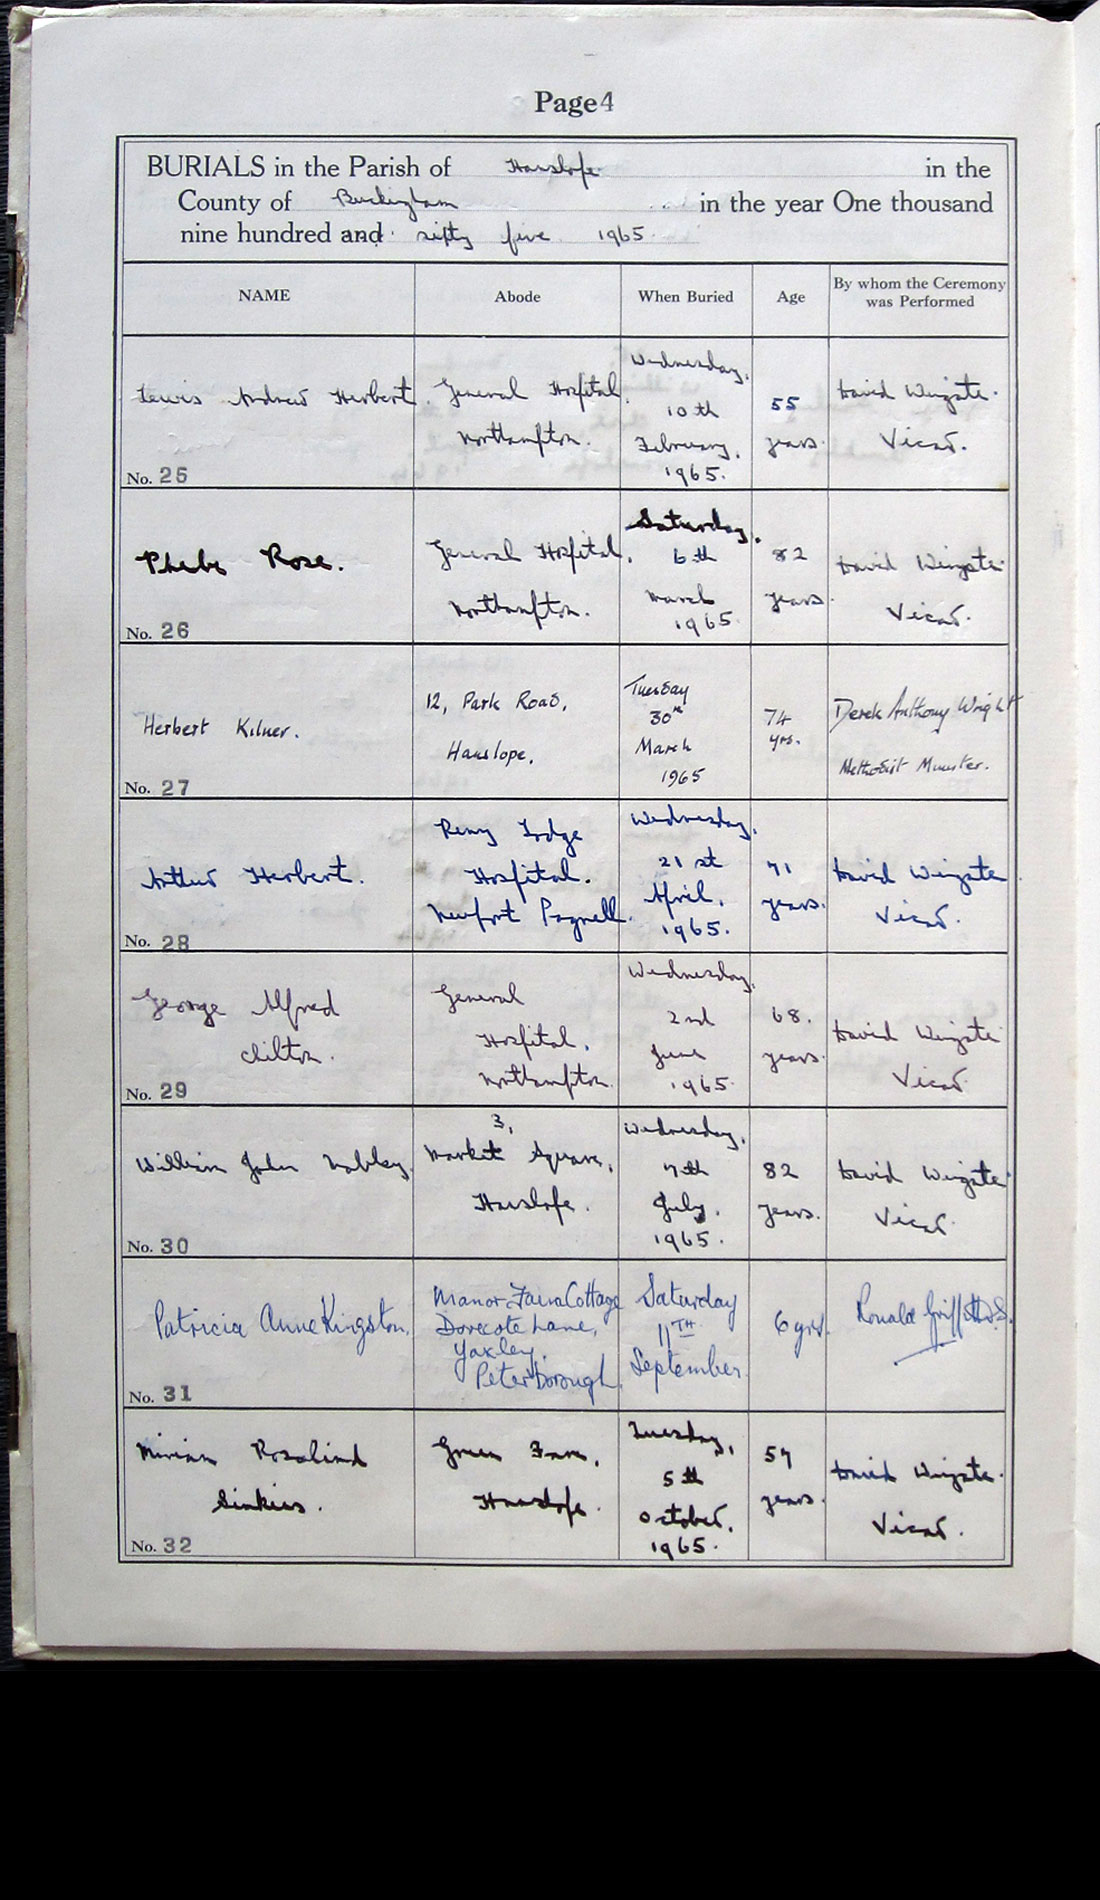 Page 4
BURIALS in the Parish of Hanslope in the
County of Buckingham in the year One thousand
nine hundred and sixty five 1965.
NAME Abode When Buried Age By whom the Ceremony
was Performed
Lewis Andrew Herbert General Hospital, Northampton. Wednesday, 10th February, 1965. 55 years. David Wingate. Vicar.
No. 25
Phebe Rose. General Hospital, Northampton. Saturday, 6th March 1965. 82 years. David Wingate. Vicar.
No. 26
Herbert Kilner. 12, Park Road, Hanslope. Tuesday 30th March 1965 74 yrs. Derek Anthony Wright Methodist Minister.
No. 27
Arthur Herbert. Renny Lodge Hospital. Newport Pagnell. Wednesday, 21st April, 1965. 71 years. David Wingate Vicar.
No. 28
George Alfred Chilton. General Hospital, Northampton. Wednesday, 2nd June 1965. 68. years. David Wingate Vicar.
No. 29
William John 3, Market Square, Hanslope. Wednesday, 7th July, 1965. 82 years. David Wingate. Vicar.
No. 30
Patricia Anne Kingston. Manor Farm Cottage Dovecote Lane, Yaxley. Peterborough. Saturday 11TH September 6 yrs. Ronald Griffiths.
No. 31
Miriam Rosalind Green Farm, Hanslope. Tuesday, 5th October, 1965. 57 years. David Wingate. Vicar.
No. 32